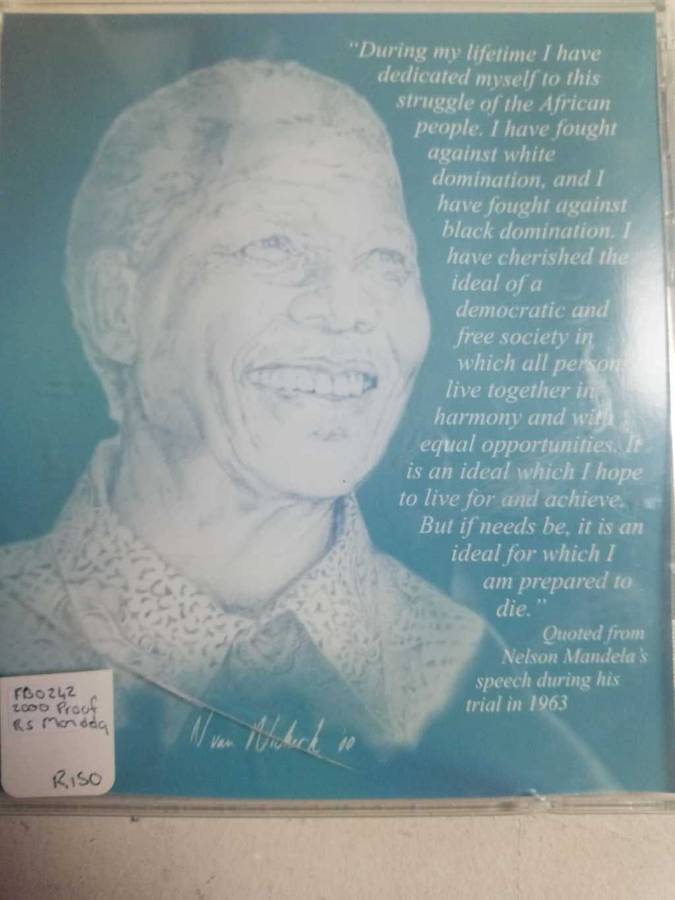 “During my lifetime I have
dedicated myself to this
struggle of the African
people. I have fought
against white
domination, and I
have fought against
black domination. I
have cherished the
ideal of a
democratic and
free society in
which all persons
live together in
harmony and with
equal opportunities. It
is an ideal which I hope
to live for and achieve.
But if needs be, it is an
ideal for which I
am prepared to
die.”
Quoted from
Nelson Mandela’s
speech during his
trial in 1963
N van Niekerk '00
FB0242
2000 Proof
R5 Mandela
R150